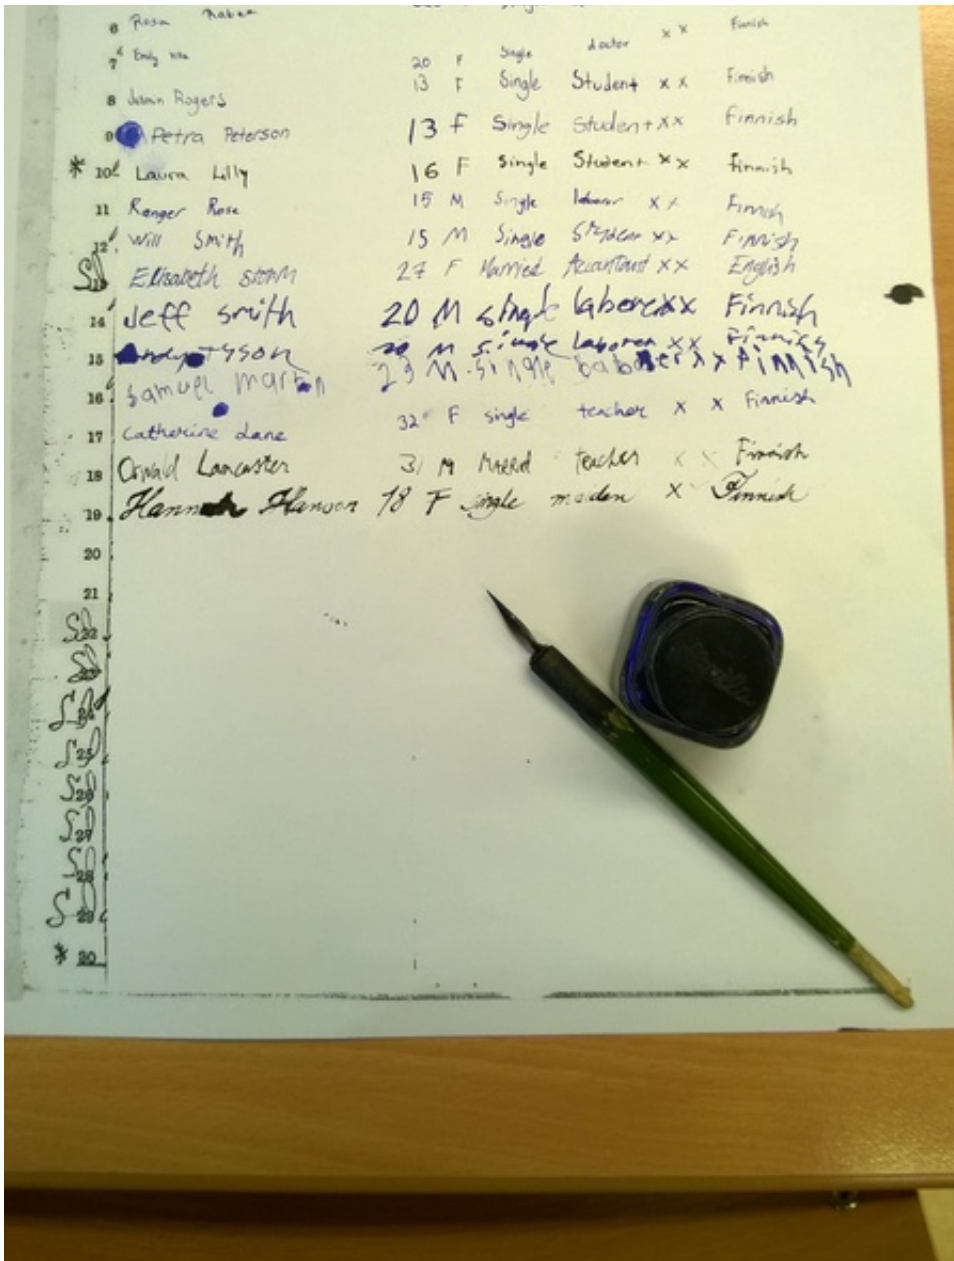 6 Rosa single x x Finnish
7 Emily 20 F Single doctor
8 Jasmin Rogers 13 F Single Student x x Finnish
9 Petra Peterson 13 F Single Student x x Finnish
* 10 Laura Lilly 16 F Single Student x x finnish
11 Ranger Rose 15 M Single laborer x x Finnish
12 Will Smith 15 M Single Student x x Finnish
Elisabeth storm 27 F Married Accountant x x English
14 Jeff smith 20 M single laborer xx Finnish
15 Andy Tyson 20 M single laborer xx Finnish
16 Samuel Martin 29 M single x x Finnish
17 Catherine Lane 32 F single teacher x x Finnish
18 Oswald Lancaster 31 M teacher x x Finnish
19 Hannah Hanson 18 F single maiden x Finnish
20
21
22
23
24
25
26
27
28
29
* 30